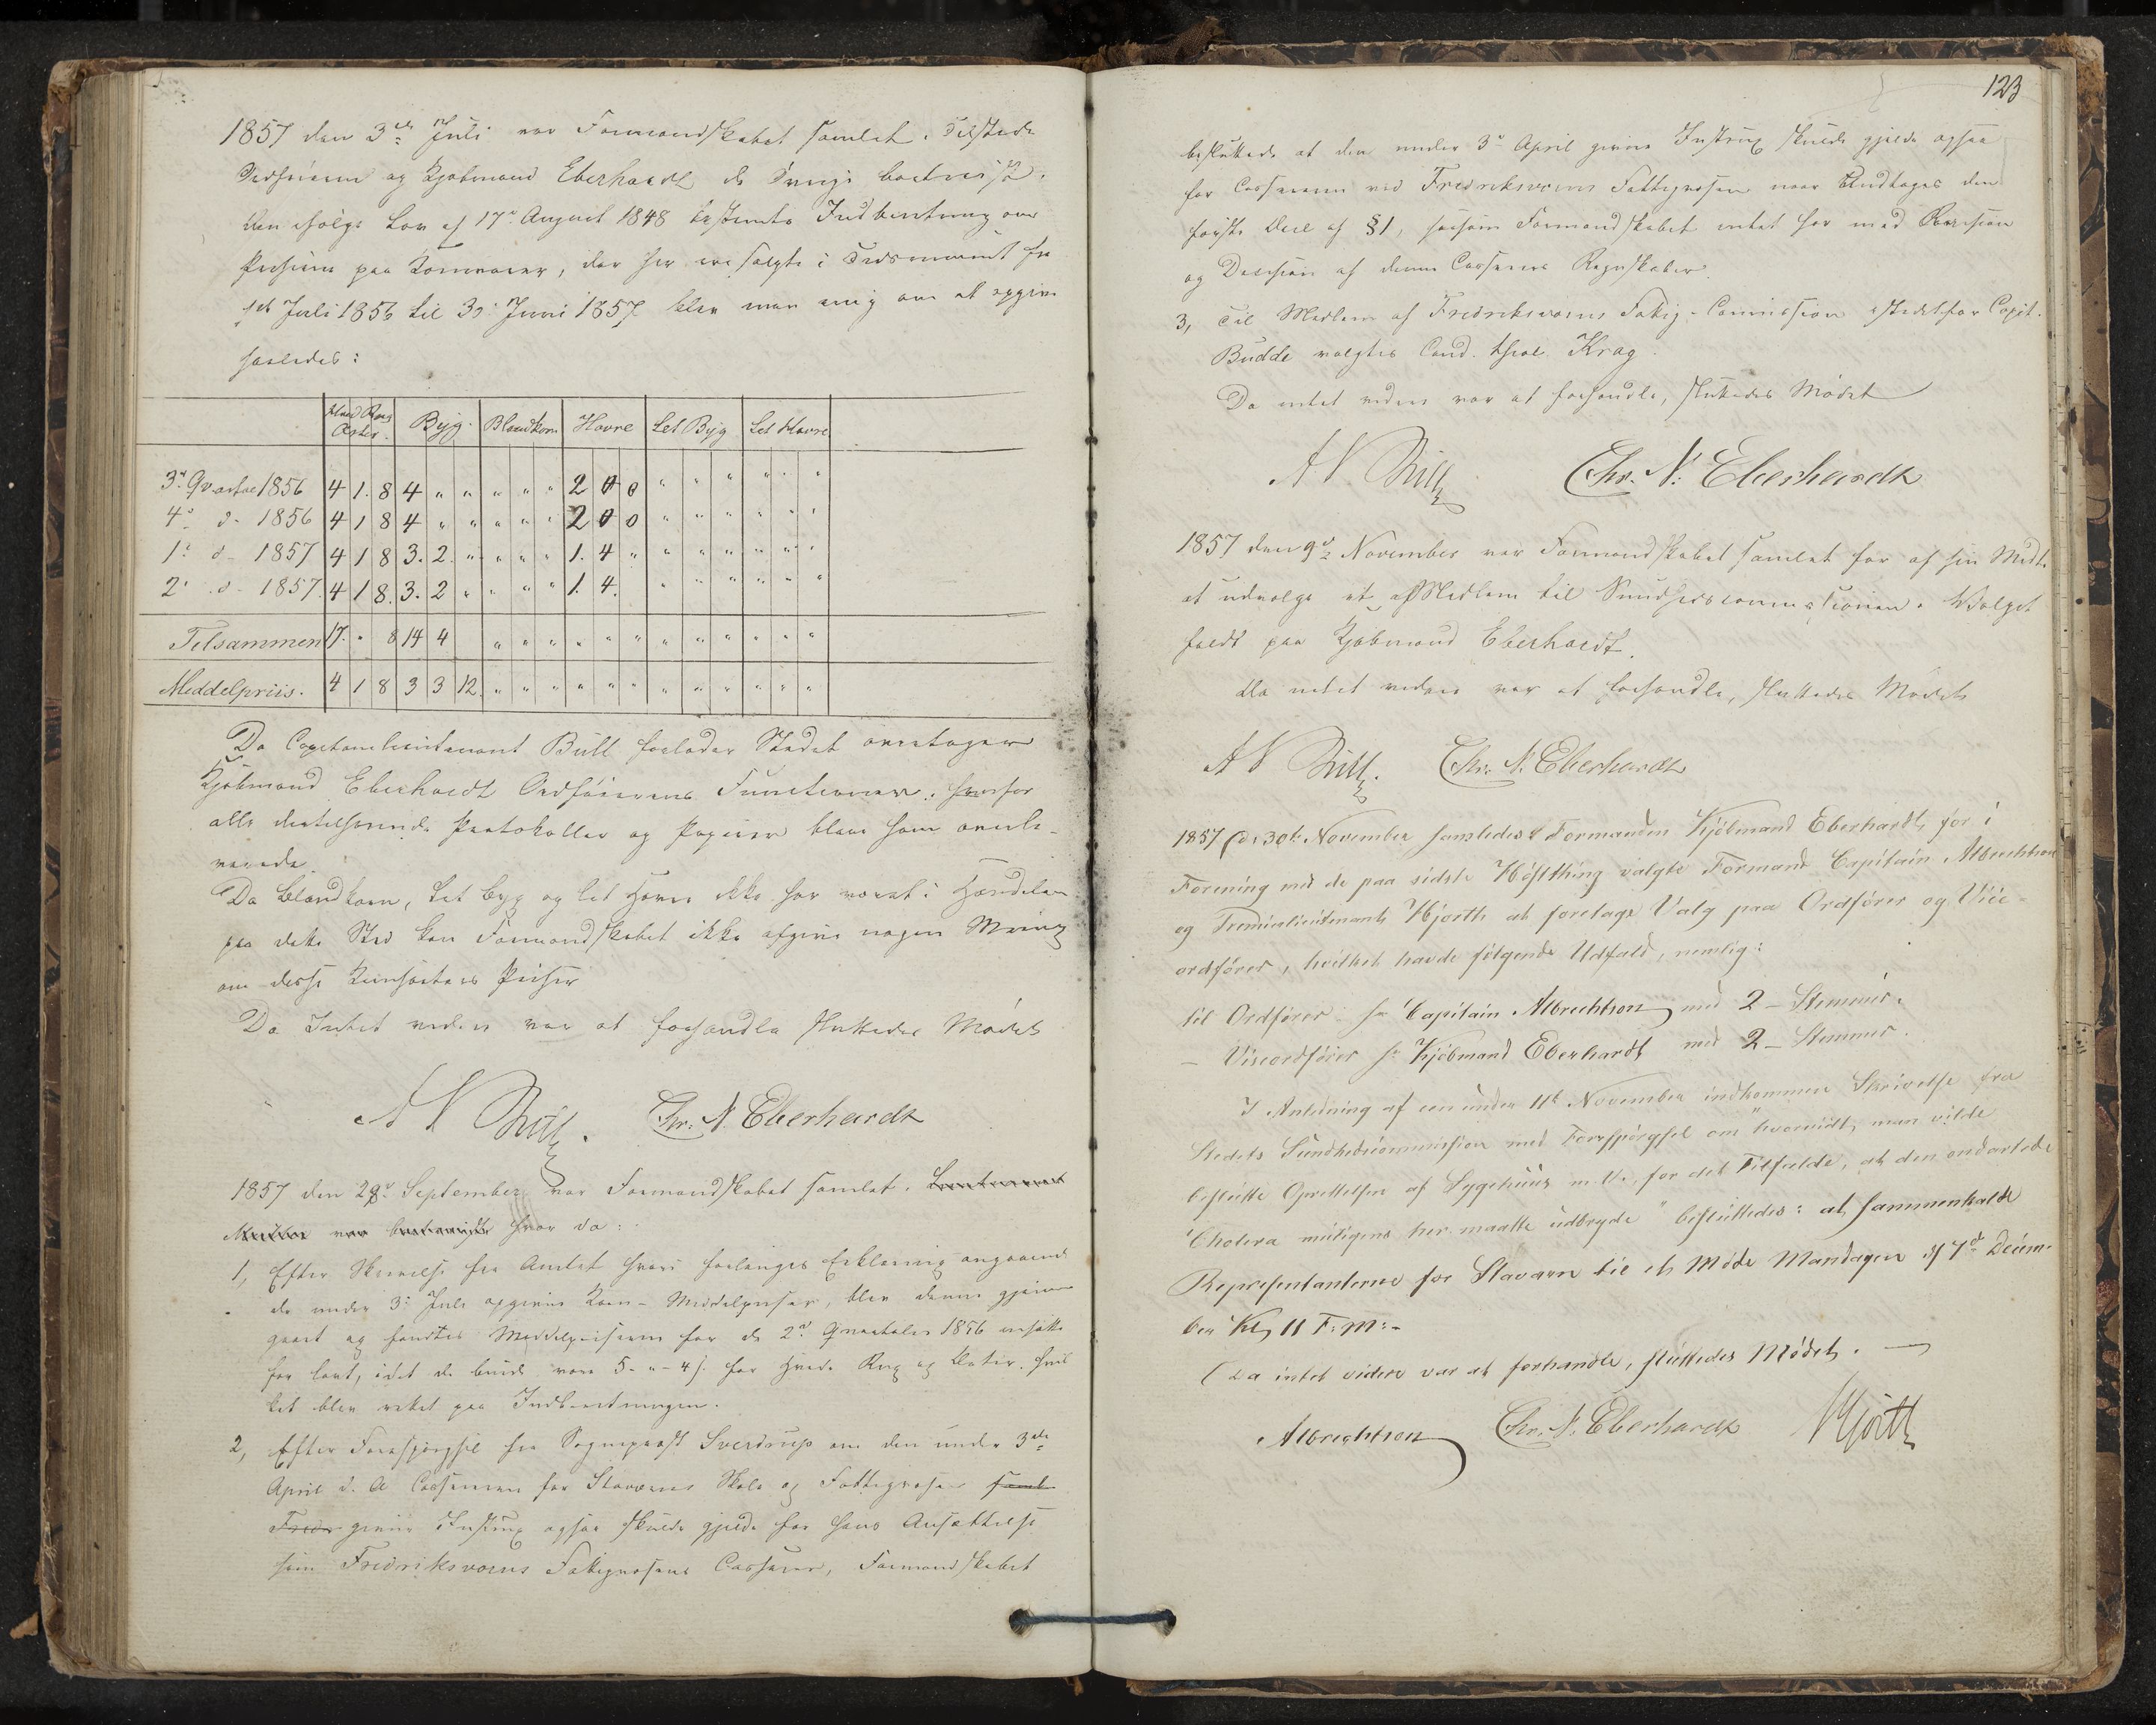 1857 den 3die Juli var Formandskabet samlet. Tilstede
Ordföreren og Kjøbmand Eberhardt de Övrige bortreiste.
Den ifølge Lov af 17de August 1848 bestemte Indberetning over
Priserne paa Kornvarer, der her ere solgte i Tidsrummet fra
1ste Juli 1856 til 30 Juni 1857 blev man enig om at opgive
saaledes:
Hvede Rug Erter. Byg. Blandkorn Havre Let Byg Let Havre
3die Qvartal 1856 4 1. 8 4 " " " " " 2 0 0 " " " " " "
4de d. 1856 4 1 8 4 " " " " " 2 0 0 " " " " " "
1ste d. 1857 4 1 8 3. 2. " " " " 1. 4 " " " " " " "
2det d. 1857. 4 1 8. 3. 2 " " " " 1. 4. " " " " " "
Tilsammen 17. " 8 14 4 " " " " " " " " " " " "
Meddelpriis. 4 1 8 3 3 12. " " " " " " " " " " " "
Da Capitainlieutenant Bull forlader Stedet overtager
Kjøbmand Eberhardt Ordförerens Functioner. hvorfor
alle dertilhørende Protokoller og Papirer bleve ham overle-
verede.
Da Blandkorn, let Byg og let Havre ikke har været i Handelen
paa dette Sted kan Formandskabet ikke afgive nogen Mening
om disse Kornsorters Priser
Da Intet videre var at forhandle sluttedes Mødet
A N Bull. Chr. N. Eberhardt
1857 den 28de September var Formandskabet samlet. Lieutenant
var bortreist hvor da:
1, Efter Skrivelse fra Amtet hvori forlanges Erklæring angaaende
de under 3die Juli opgivne Korn-Middelpriser, blev denne gjennem-
gaaet og fandtes Meddelpriserne for de 2de Qvartaler 1856 ansatte
for lavt, idet de burde være 5 - " - 4 s. for Hvede Rug og Erter. hvil-
ket blev rettet paa Indberetningen.
2, Efter Forespörgsel fra Sogneprest Sverdrup om den under 3die
April d. A. Cassereren for Staværns Skole og Fattigvæsen samt
Fredr givne Instrux ogsaa skulde gjelde for hans Ansættelse
som Fredriksværns Fattigvæsens Casserer, Formandskabet
123
besluttede at den under 3die April givne Instrux skulde gjelde ogsaa
for Cassereren ved Fredriksværns Fattigvæsen naar undtages den
første Deel af §1, saasom Formandskabet intet har med Revision
og Decision af denne Casserers Regnskaber.
3, Til Medlem af Fredriksværns Fattig-Commission istedetfor Capit.
Budde valgtes Cand. theol. Krag.
Da intet videre var at forhandle, sluttedes Mødet
A N Bull Chr. N. Eberhardt
1857 den 9de November var Formandskabet samlet for af sin Midte
at udvælge et Medlem til Sundhedscommissionen. Valget
faldt paa Kjøbmand Eberhardt.
Da intet videre var at forhandle, sluttedes Mødet
A N Bull. Chr. N. Eberhardt
1857 d. 30te November samledes Formanden Kjöbmand Eberhardt for i
Forening med de paa sidste Høstthing valgte Formænd Capitain Albrechtson
og Premierlieutenant Hjorth at foretage Valg paa Ordförer og Vice-
ordförer, hvilket havde følgende Udfald, nemlig:
til Ordförer - Hr Capitain Albrechtson med 2 - Stemmer.
- Viceordförer Hr Kjöbmand Eberhardt med 2 - Stemmer.
I Anledning af een under 11te November indkommen Skrivelse fra
Stedets Sundhedscommission med Forespörgsel om "hvorvidt, man vilde
beslutte Oprettelsen af Sygehuus m. V., for det Tilfælde, at den ondartede
Cholera muligens her maatte udbryde" besluttedes: at sammenkalde
Representanterne for Staværn til et Møde Mandagen d. 7de Decem-
ber Kl. 11 F: M: -
Da intet videre var at forhandle, sluttedes Mødet. —
Albrechtson Chr. N. Eberhardt Hjorth